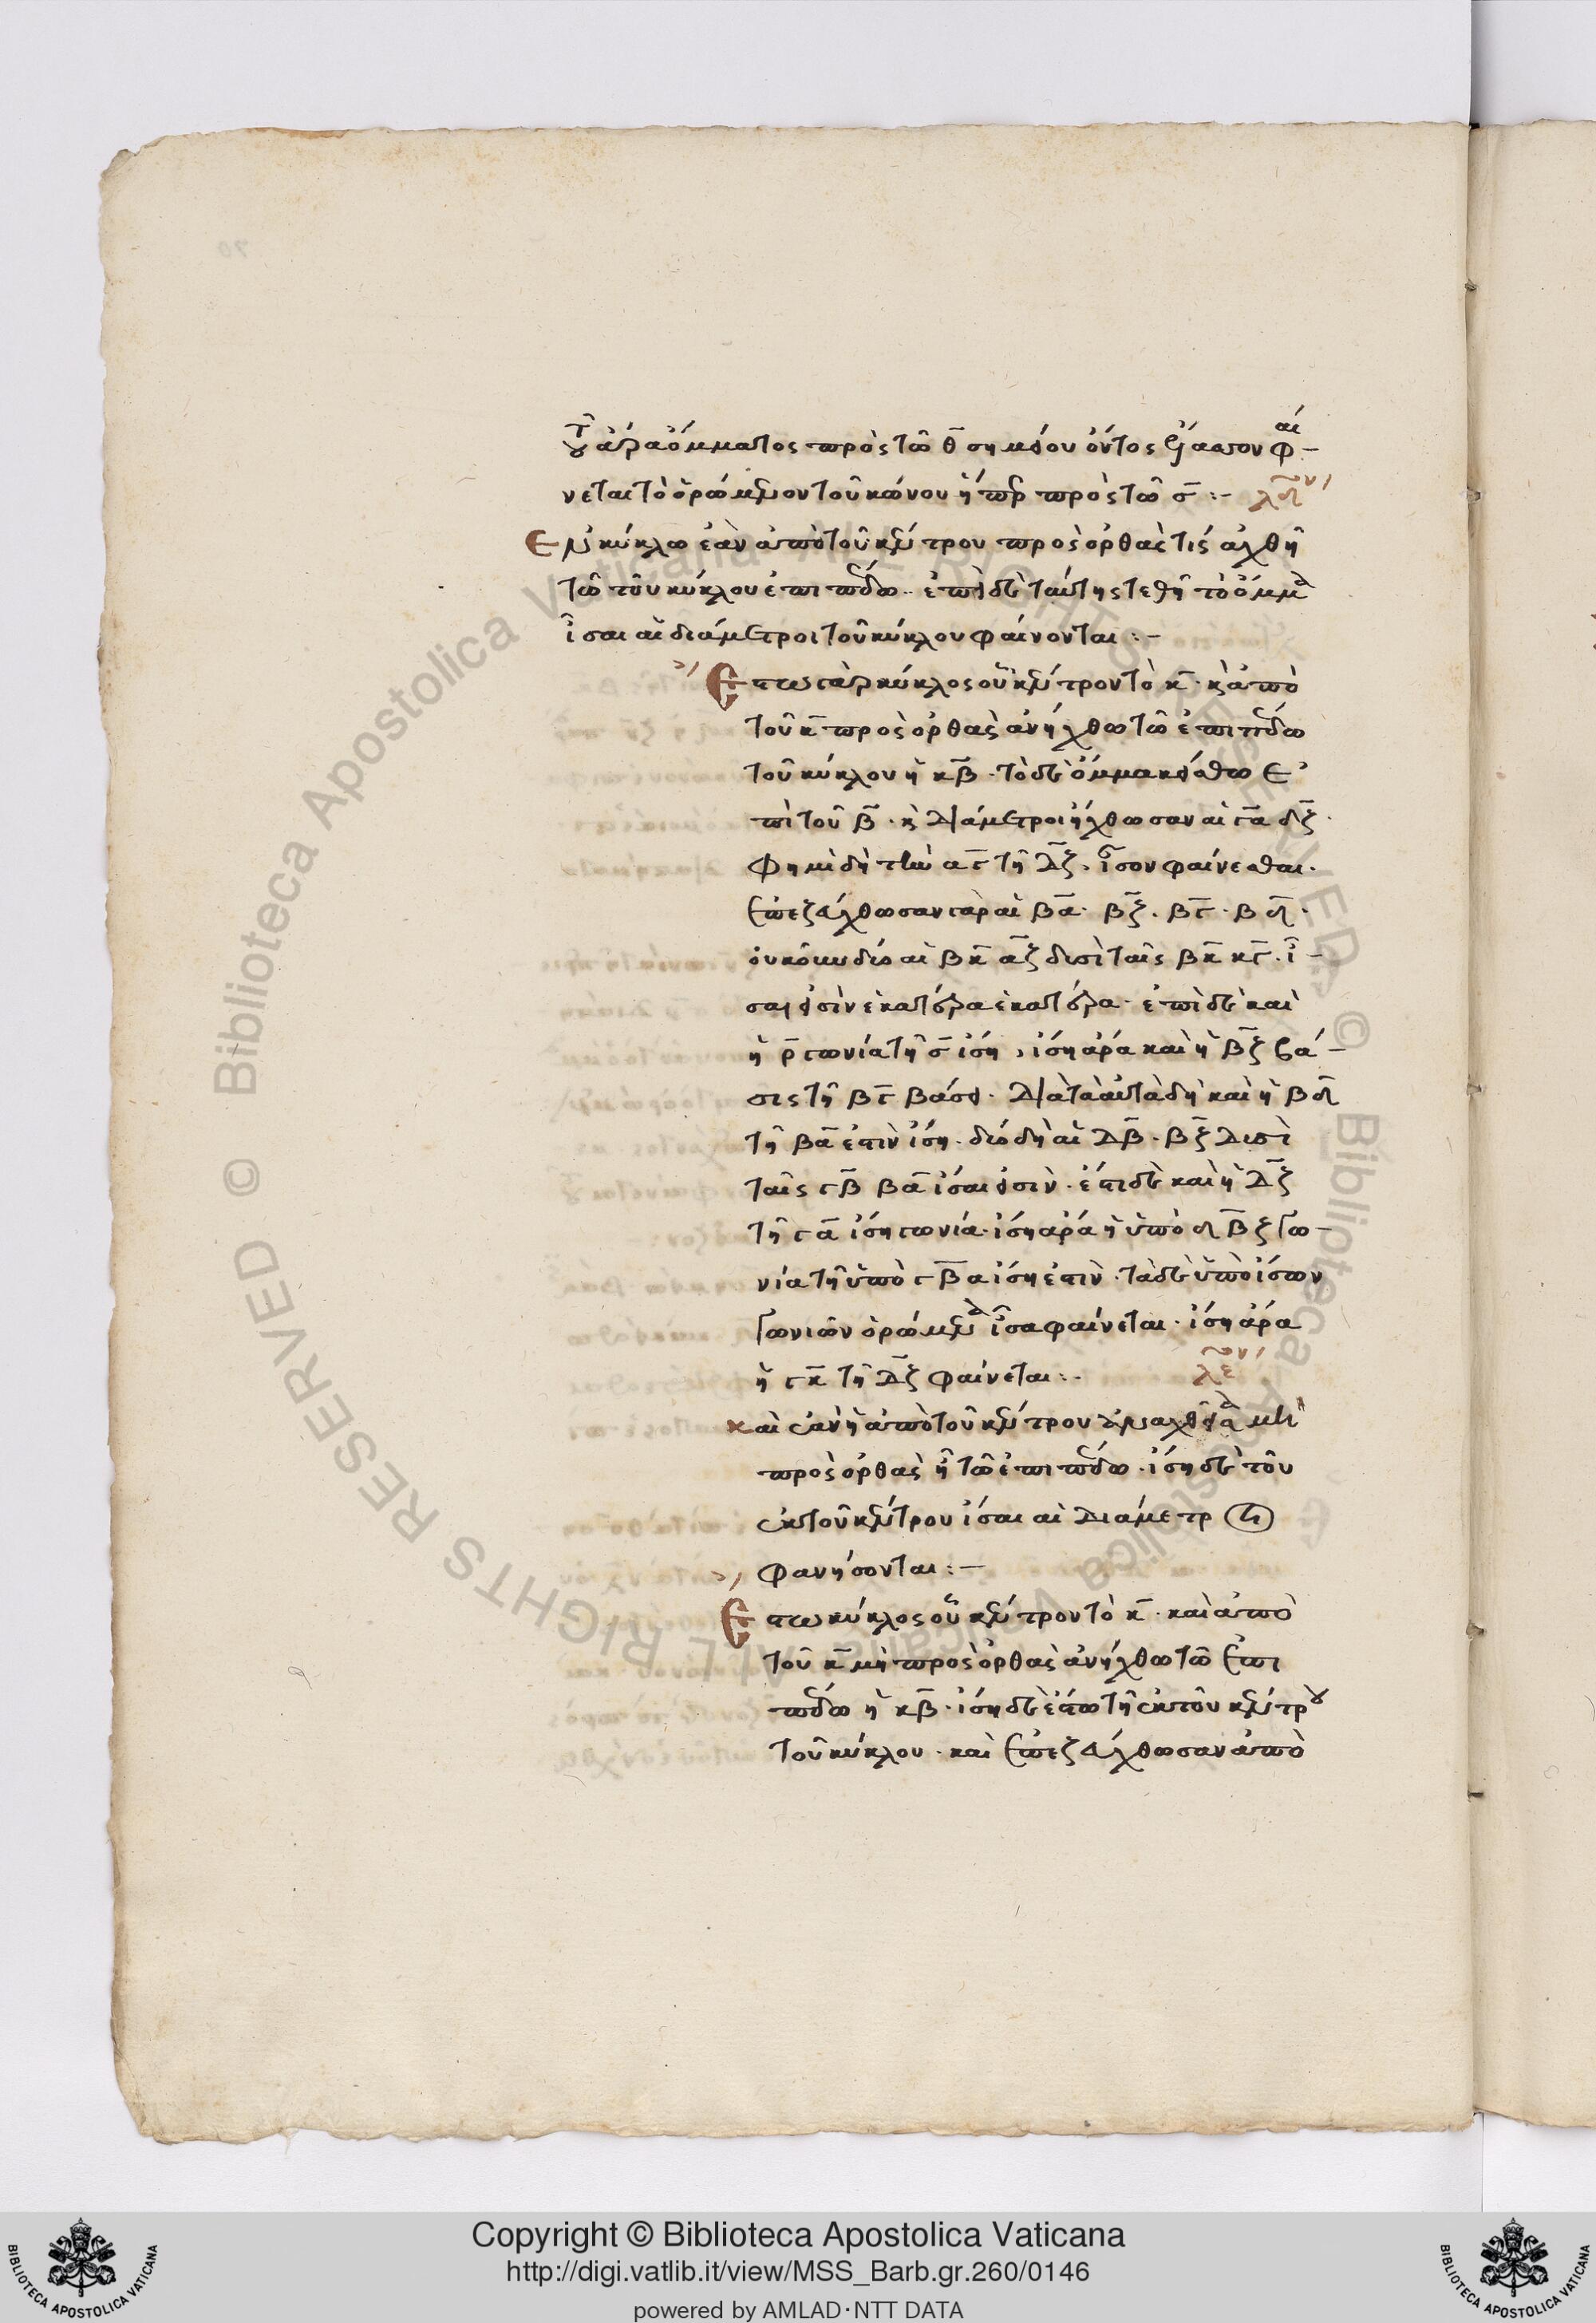 τοῦ ἄρα ὄμματος πρὸς τῶ θ̅ σημείου ὄντος ἔλασσον φαί-
νεται τὸ ὁρώμενον τοῦ κώνου ἤπερ πρὸς τῶ σ̅ :- λδον
Ἐν κύκλω ἐὰν ἀπὸ τοῦ κέντρου προς ὀρθάς τις ἀχθῆ
τῶ τοῦ κύκλου ἐπιπέδω· ἐπὶ δὲ ταύτης τεθῆ τὸ ὄμμα
ἶσαι αἱ διάμετροι τοῦ κύκλου φαίνονται :-
Ἔστω γὰρ κύκλος οὗ κέντρον τὸ κ̅· κὶ ἀπὸ
τοῦ κ̅ προς ὀρθὰς ἀνήχθω τῶ ἐπιπέδω
τοῦ κύκλου ἡ κβ̅· τὸ δὲ ὄμμα κείσθω ἐ
πὶ τοῦ β̅· κὶ διάμετροι ἤχθωσαν αἱ γα̅ δζ̅·
Φημὶ δὴ τὴν αγ̅ τῆ δζ̅· ἶσον φαίνεσθαι·
Ἐπεζεύχθωσαν γὰρ αἱ βα̅· βζ̅· βγ̅· βδ̅·
οὐκοῦν δύο αἱ βκ̅ α̅ζ δυσὶ ταῖς βκ̅ κγ̅· ἶ-
σαι εἰσὶν ἑκατέρα ἑκατέρα· ἐπὶ δὲ καὶ
ἡ ρ̅ γωνία τῆ σ̅ ἴση, ἴση ἀρά καὶ ἡ βζ̅ βά-
σις τῆ βγ̅ βάσει· διὰ τὰ αὐτὰ δὴ καὶ ἡ βδ̅
τῆ βα̅ ἐστὶν ἴση· δύο δὴ αἱ δβ̅· βζ̅ δυσὶ
ταῖς γβ̅ βα̅ ἴσαι εἰσὶν· ἔστι δὲ καὶ ἡ δζ̅
τῆ γα̅ ἴση γωνία· ἴση ἀρά ἡ ὑπὸ δβ̅ζ γω-
νία τῆ ὑπὸ γβ̅α ἴση ἐστὶν· τὰ δὲ ὑπὸ ἴσων
γωνιῶν ὁρώμενα ἶσα φαίνεται· ἴση ἀρά
ἡ γκ̅ τῆ δζ̅ φαίνεται :- λεον
καὶ ἐὰν ἡ ἀπὸ τοῦ κέντρου ἀναχθεῖσα μὴ
πρὸς ὀρθὰς ἦ τῶ ἐπιπέδω· ἴση δὲ τοῦ
ἐκ τοῦ κέντρου ἴσαι αἱ διάμετροι
φανήσονται :-
Ἔστω κύκλος οὗ κέντρον τὸ κ̅· καὶ ἀπὸ
τοῦ κ̅ μὴ πρὸς ὀρθὰς ἀνήχθω τῶ ἐπι
πέδω ἡ κβ̅· ἴση δὲ ἔστω τῆ ἐκ τοῦ κέντρου
τοῦ κύκλου· καὶ ἐπεζεύχθωσαν ἀπὸ
Copyright © Biblioteca Apostolica Vaticana
http://digi.vatlib.it/view/MSS_Barb.gr.260/0146
powered by AMLAD·NTT DATA